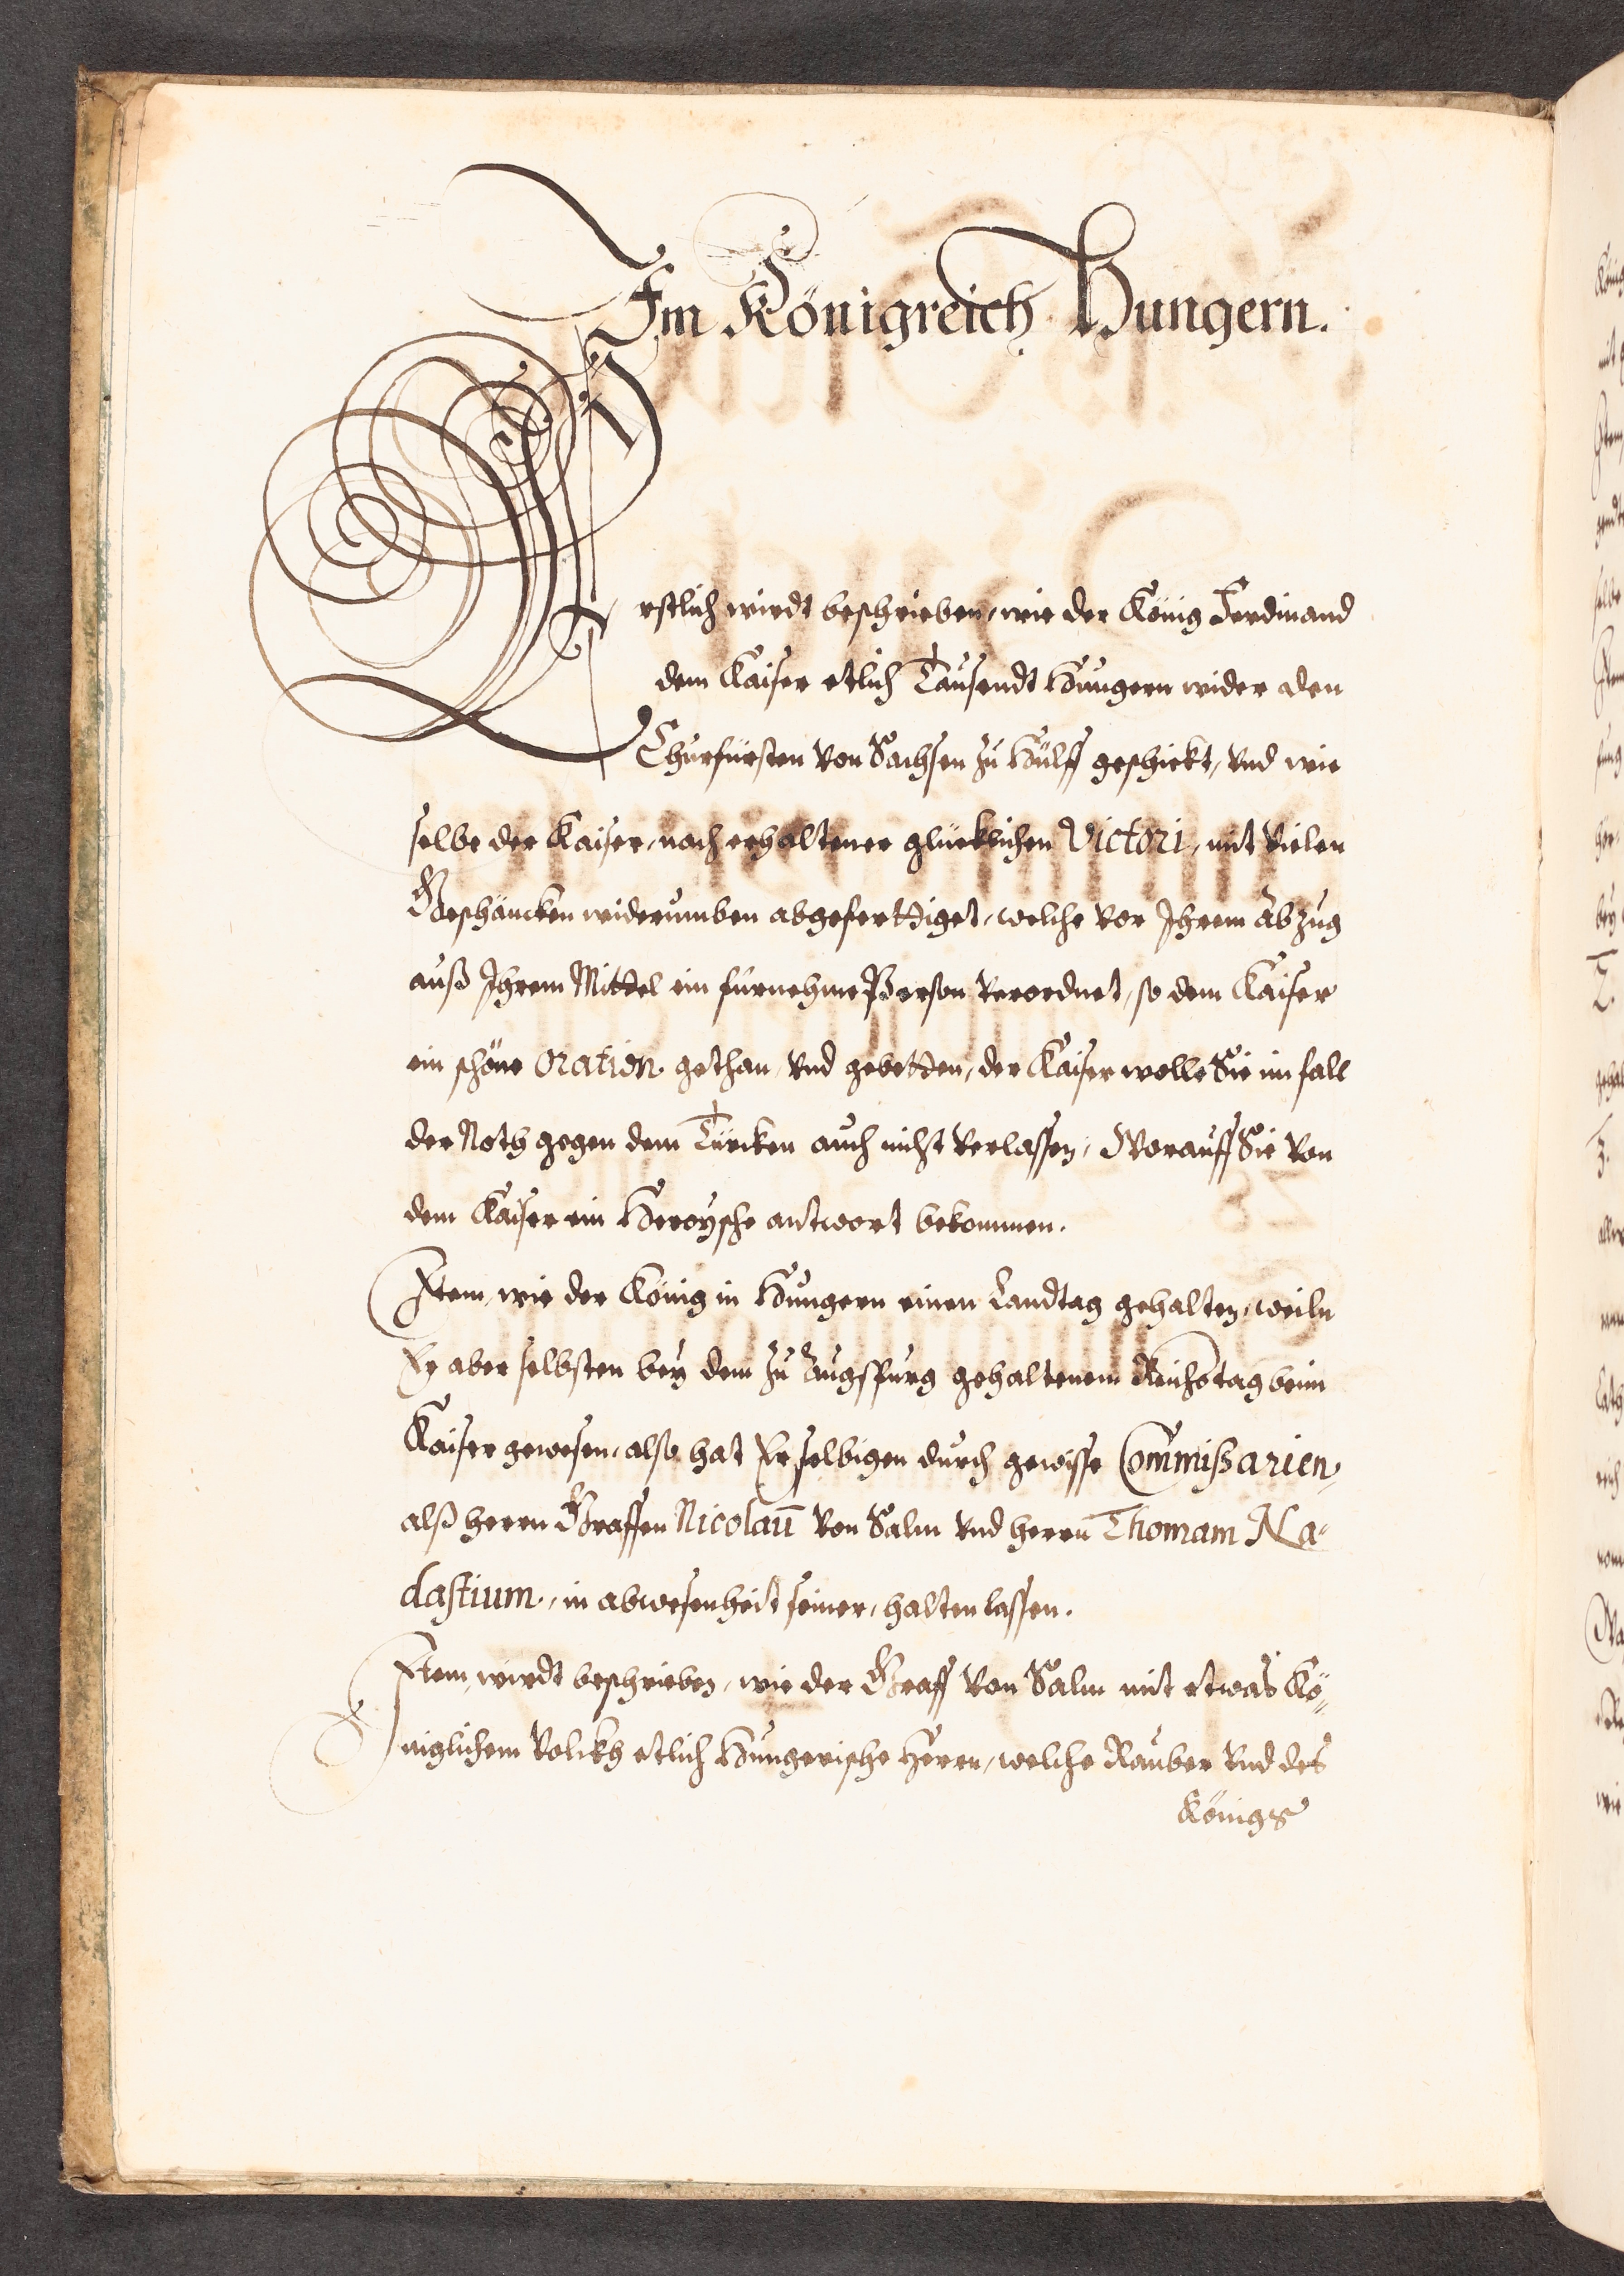 Im Königreich Hungern.
Erstlich wirdt beschrieben, wie der König Ferdinand
dem Kaiser etlich Tausendt Hungern wider den
Churfürsten von Sachsen zu Hülff geschickt, vnd wie
selbe der Kaiser, nach erhaltener glücklichen Victori, mit vielen
Geschäncken widerumben abgeferttiget, welche vor Ihrem abzug
auß Ihrem Mittel ein fürnehme Person verordnet, so dem Kaiser
ein schöne Oration gethan, vnd gebetten, der Kaiser wolle Sie im fall
der Noth gegen dem Türcken auch nicht verlassen, Worauff Sie von
dem Kaiser ein Heroysche antwort bekommen.
Item, wie der König in Hungern einen Landtag gehalten, weiln
Er aber selbsten bey dem zu Augspurg gehaltenem Reichstag beim
Kaiser gewesen, also hat Er selbigen durch gewisse Commißarien,
alß herrn Graffen Nicolaū von Salm vnd herrn Thomam Na-
dastium, in abwesenheit seiner, halten lassen.
Item, wirdt beschrieben, wie der Graff von Salm mit etwas Kö-
niglichem Volckh etlich Hungerische Herrn, welche Rauber vnd des
Königs